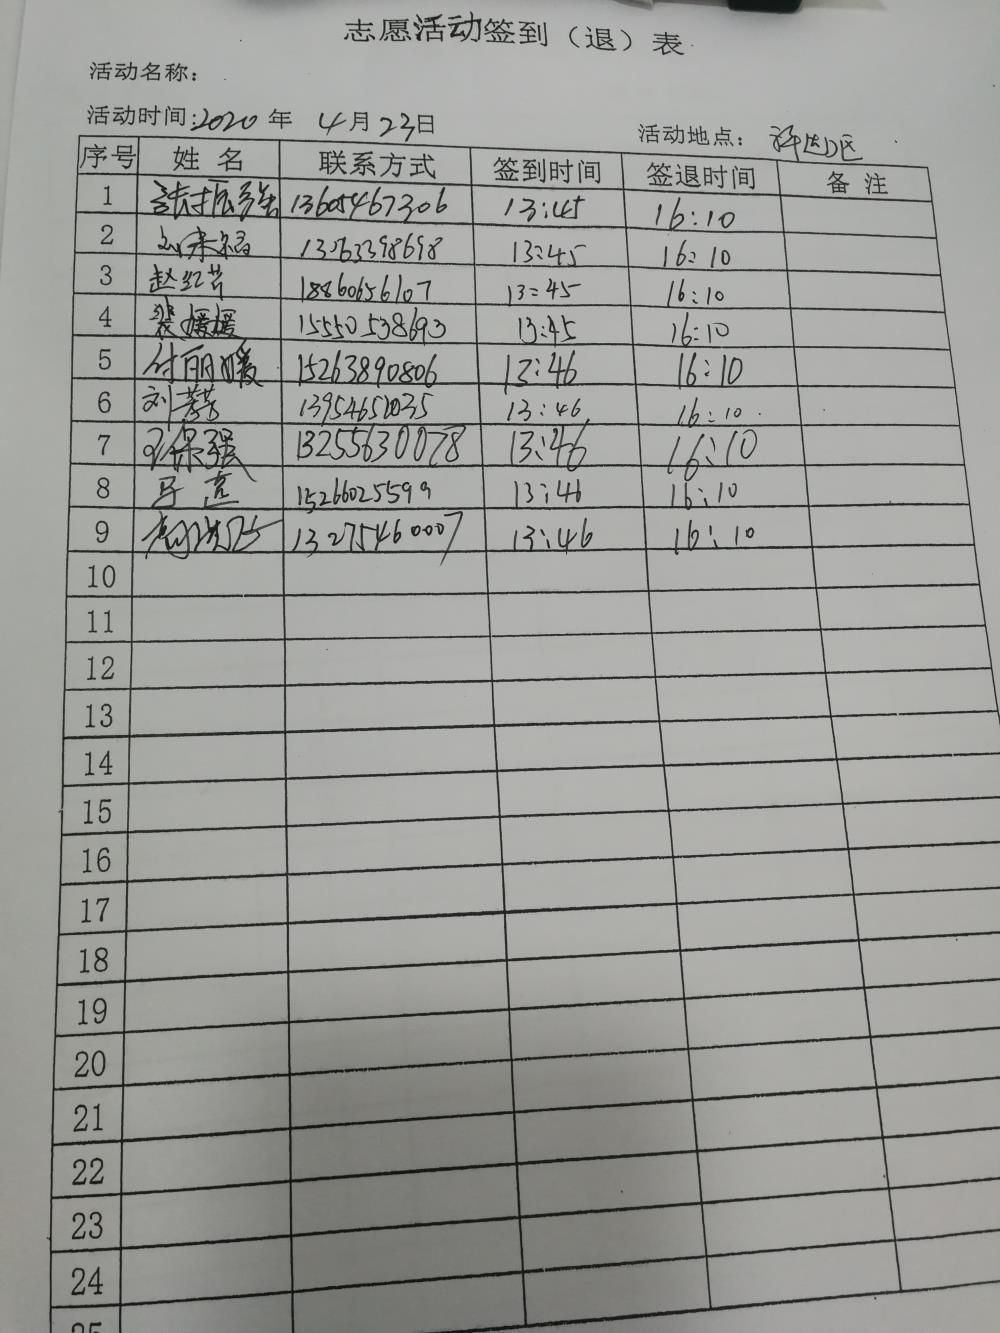 志愿活动签到（退）表
活动名称：
活动时间：2020 年 4 月 23 日 活动地点：
序号 姓名 联系方式 签到时间 签退时间 备注
1 13605467306 13:45 16:10
2 13563398698 13:45 16:10
3 赵红芳 18860656107 13:45 16:10
4 裴媛媛 15550538693 13:45 16:10
5 付丽媛 15263890806 13:46 16:10
6 刘芳芳 13:46 16:10
7 王保强 13255630078 13:46 16:10
8 马亮 15266025599 13:46 16:10
9 13275460007 13:46 16:10
10
11
12
13
14
15
16
17
18
19
20
21
22
23
24
25